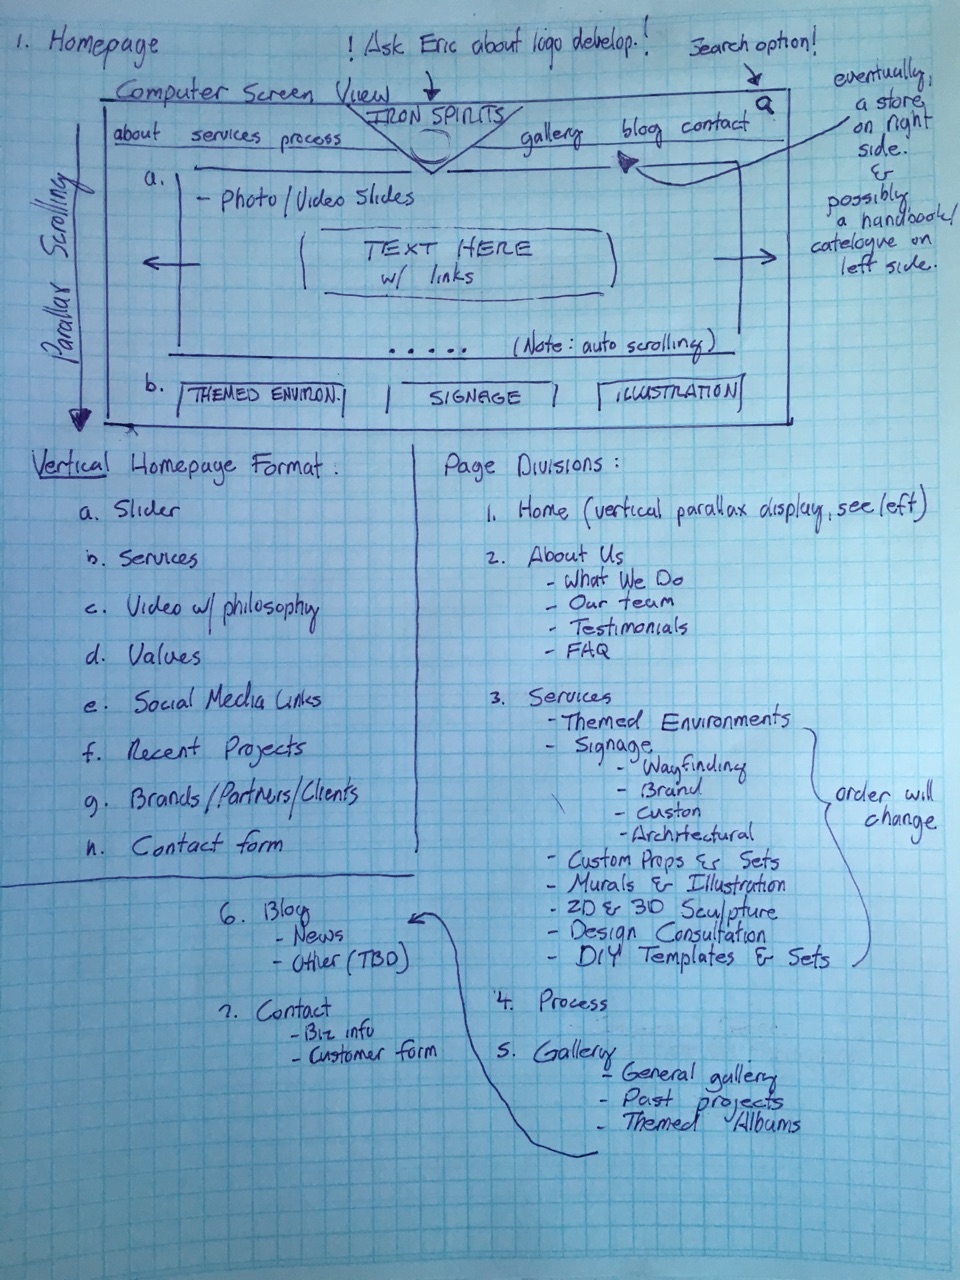 1. Homepage
! Ask Eric about logo develop.!
Search option!
Computer Screen View
IRON SPIRITS
about services process
gallery blog contact
eventually,
a store
on right
side.
&
possibly
a handbook/
catelogue on
left side.
Parallax Scrolling
a.
- Photo/Video Slides
TEXT HERE
w/ links
..... (Note: auto scrolling)
b.
THEMED ENVIRON.
SIGNAGE
ILLUSTRATION
Vertical Homepage Format:
a. Slider
b. Services
c. Video w/ philosophy
d. Values
e. Social Media Links
f. Recent Projects
g. Brands/Partners/Clients
h. Contact form
Page Divisions:
1. Home (vertical parallax display, see left)
2. About Us
- What We Do
- Our team
- Testimonials
- FAQ
3. Services
- Themed Environments
- Signage
- Wayfinding
- Brand
- Custon
- Architectural
- Custom Props & Sets
- Murals & Illustration
- 2D & 3D Sculpture
- Design Consultation
- DIY Templates & Sets
order will
change
4. Process
5. Gallery
- General gallery
- Past projects
- Themed Albums
6. Blog
- News
- Other (TBD)
7. Contact
- Biz info
- Customer form